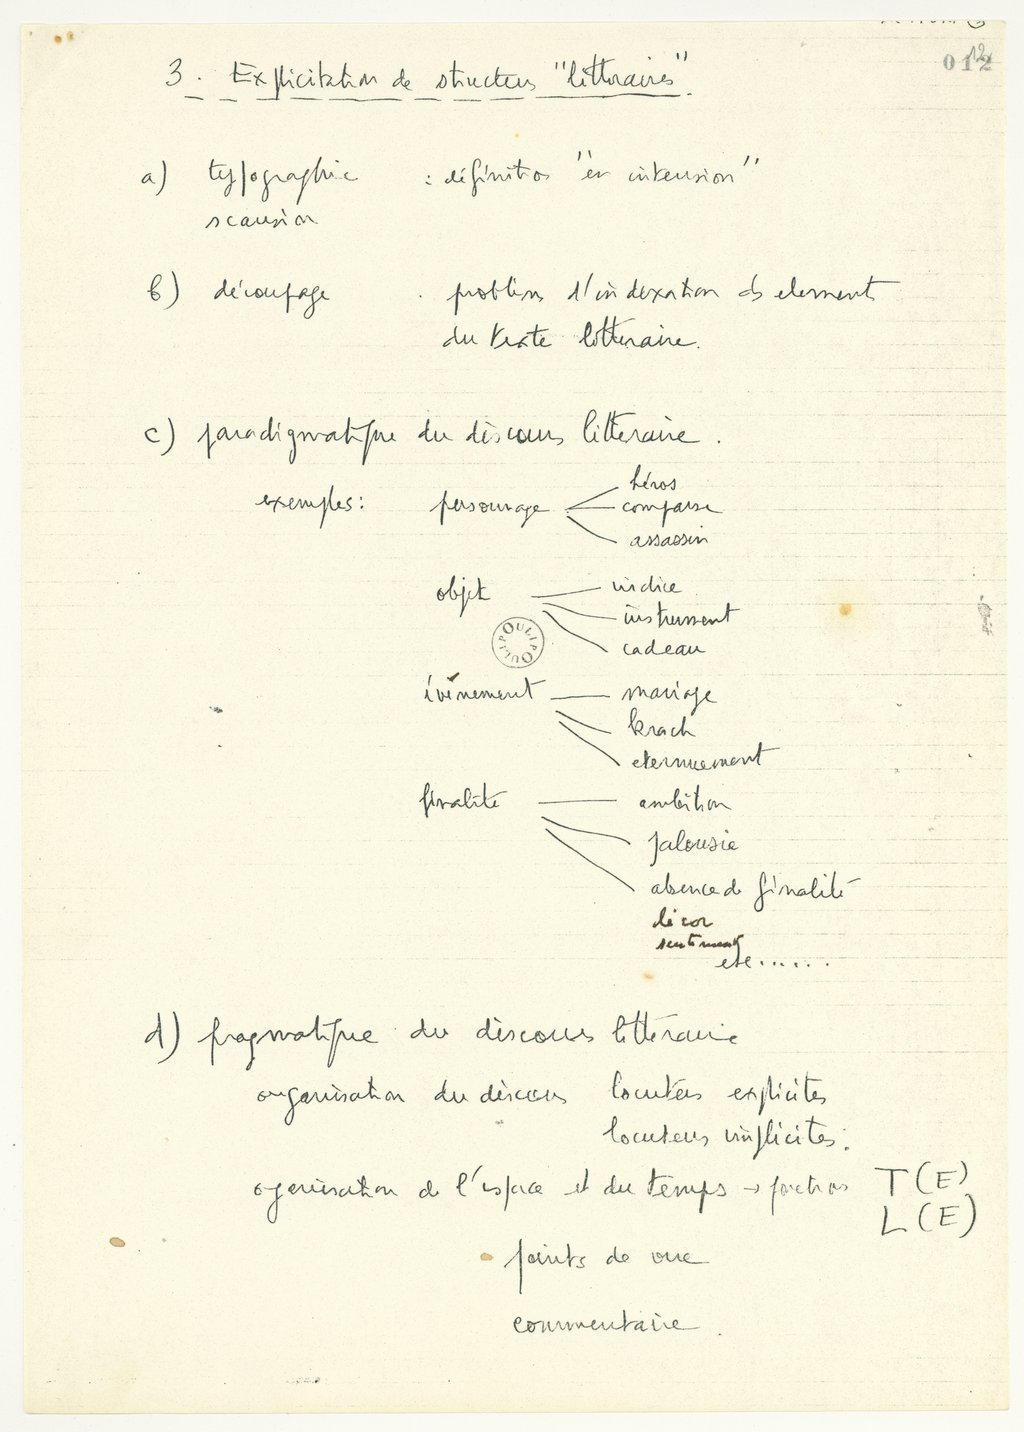 012
3. Explicitation de structures "littéraires".
a) typographie : définition "en intension"
scansion
b) découpage . problème d'indexation des elements
du texte littéraire.
c) paradigmatique du discours littéraire.
exemples: personnage héros
comparse
assassin
objet indice
instrument
cadeau
OULIPO OULIPO
évènement mariage
krach
eternuement
finalité ambition
jalousie
absence de finalité
décor
sentiment
etc......
d) pragmatique du discours littéraire
organisation du discours locuteurs explicites
locuteurs implicites.
organisation de l'espace et du temps → fonctions T(E)
L(E)
points de vue
commentaire.